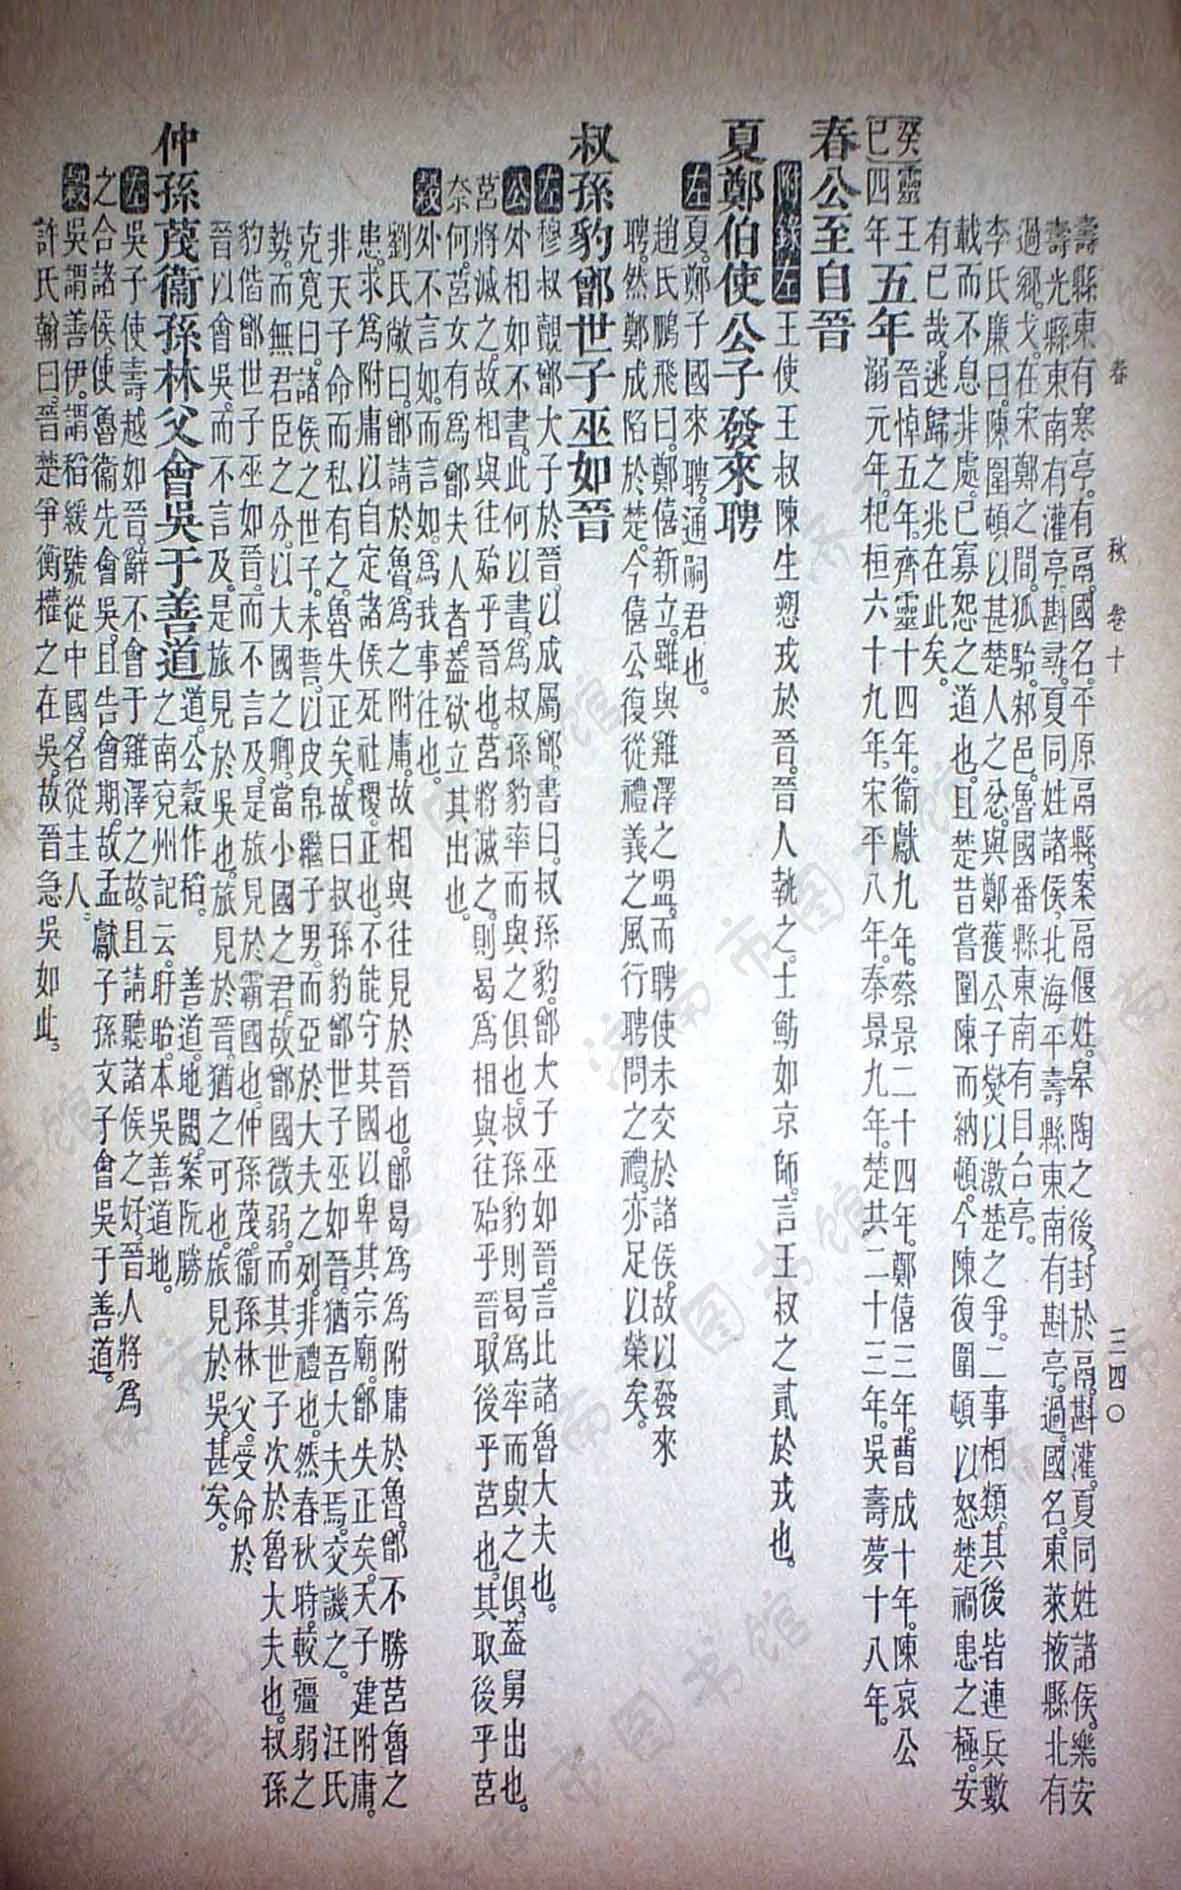 春　秋　卷十　三四〇
壽縣東有寒亭。有鬲。國名。平原鬲縣。案鬲偃姓。皋陶之後。封於鬲。斟灌。夏同姓諸侯。樂安
壽光縣東南有灌亭。斟尋。夏同姓諸侯。北海平壽縣東南有斟亭。過。國名。東萊掖縣北有
過鄉。戈。在宋鄭之間。狐駘。邾邑。魯國番縣東南有目台亭。
李氏廉曰。陳圍頓以甚楚人之忿。與鄭獲公子燮以激楚之爭。二事相類。其後皆連兵數
載而不息。非處己寡怨之道也。且楚昔嘗圍陳而納頓。今陳復圍頓以怒楚。禍患之極。安
有已哉。逃歸之兆在此矣。
癸巳 靈王四年 五年 晉悼五年。齊靈十四年。衞獻九年。蔡景二十四年。鄭僖三年。曹成十年。陳哀公
溺元年。杞桓六十九年。宋平八年。秦景九年。楚共二十三年。吳壽夢十八年。
春公至自晉
附錄左 王使王叔陳生愬戎於晉。晉人執之。士魴如京師。言王叔之貳於戎也。
夏鄭伯使公子發來聘
左 夏。鄭子國來聘。通嗣君也。
趙氏鵬飛曰。鄭僖新立。雖與雞澤之盟。而聘使未交於諸侯。故以發來
聘。然鄭成陷於楚。今僖公復從禮義之風。行聘問之禮。亦足以榮矣。
叔孫豹鄫世子巫如晉
左 穆叔覿鄫大子於晉。以成屬鄫。書曰。叔孫豹。鄫大子巫如晉。言比諸魯大夫也。
公 外相如不書。此何以書。爲叔孫豹率而與之俱也。叔孫豹則曷爲率而與之俱。蓋舅出也。
莒將滅之。故相與往殆乎晉也。莒將滅之。則曷爲相與往殆乎晉。取後乎莒也。其取後乎莒
奈何。莒女有爲鄫夫人者。蓋欲立其出也。
穀 外不言如。而言如。爲我事往也。
劉氏敞曰。鄫請於魯。爲之附庸。故相與往見於晉也。鄫曷爲爲附庸於魯。鄫不勝莒魯之
患。求爲附庸以自定。諸侯死社稷。正也。不能守其國以卑其宗廟。鄫失正矣。天子建附庸。
非天子命而私有之。魯失正矣。故曰叔孫豹鄫世子巫如晉。猶吾大夫焉。交譏之。　汪氏
克寬曰。諸侯之世子。未誓。以皮帛繼子男。而亞於大夫之列。非禮也。然春秋時。較彊弱之
勢。而無君臣之分。以大國之卿。當小國之君。故鄫國微弱。而其世子次於魯大夫也。叔孫
豹偕鄫世子巫如晉。而不言及。是旅見於霸國也。仲孫蔑。衞孫林父。受命於
晉以會吳。而不言及。是旅見於吳也。旅見於晉。猶之可也。旅見於吳。甚矣。
仲孫蔑衞孫林父會吳于善道 道。公穀作稻。　善道。地闕。案阮勝
之南兗州記云。盱眙。本吳善道地。
左 吳子使壽越如晉。辭不會于雞澤之故。且請聽諸侯之好。晉人將爲
之合諸侯。使魯衞先會吳。且告會期。故孟獻子孫文子會吳于善道。
穀 吳謂善伊。謂稻緩。號從中國。名從主人。
許氏翰曰。晉楚爭衡。權之在吳。故晉急吳如此。